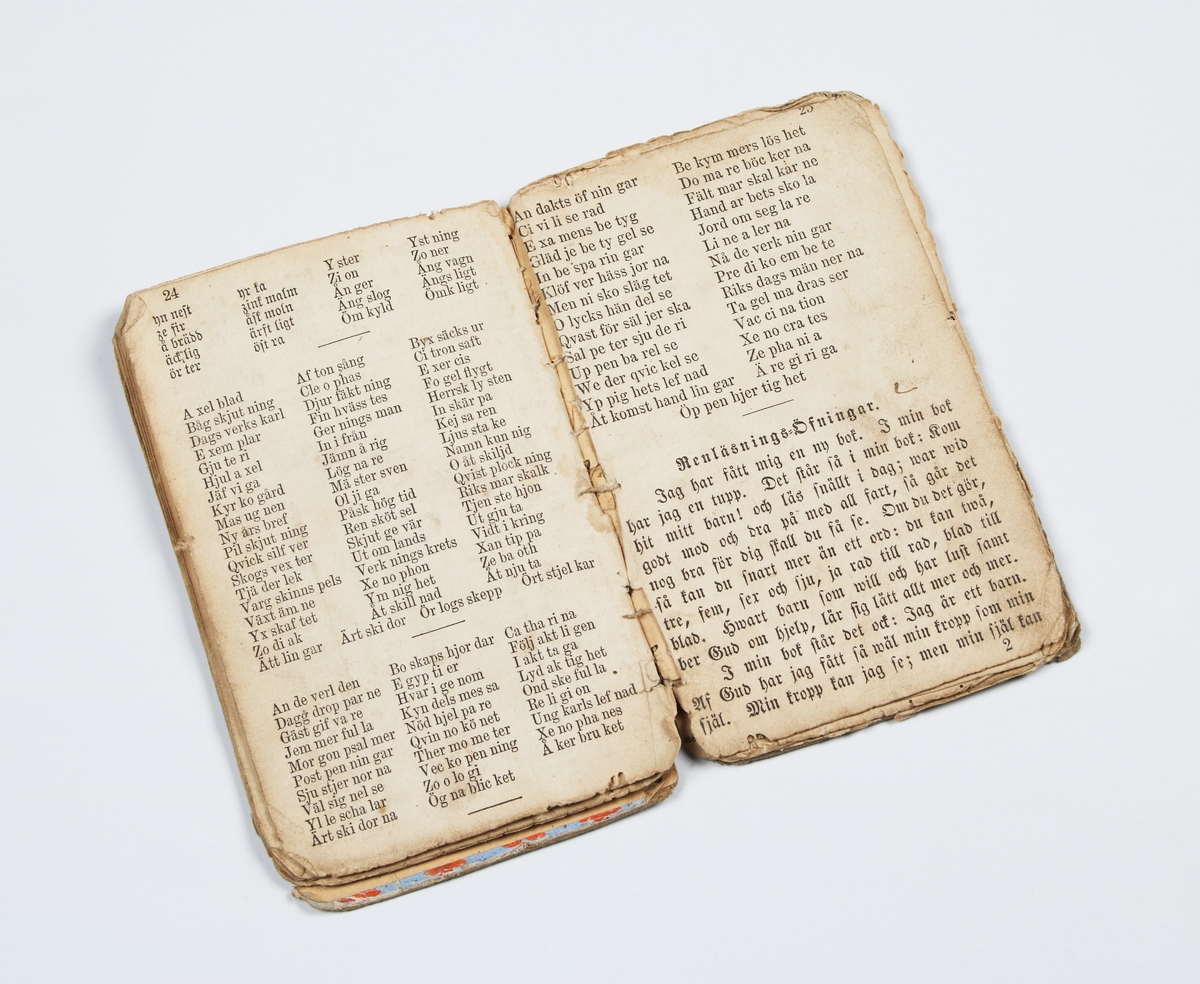 24
yn nest
ze fir
å brädd
äck lig
ör ter
yr ka
zink malm
åsk moln
ärft ligt
öst ra
Y ster
Zi on
Ån ger
Äng slog
Öm kyld
Yst ning
Zo ner
Ång vagn
Ängs ligt
Ömk ligt
A xel blad
Båg skjut ning
Dags verks karl
E xem plar
Gju te ri
Hjul a xel
Jäf vi ga
Kyr ko gård
Mas ug nen
Ny års bref
Pil skjut ning
Qvick silf ver
Skogs vex ter
Tjä der lek
Varg skinns pels
Växt äm ne
Yx skaf tet
Zo di ak
Ått lin gar
Af ton sång
Cle o phas
Djur fäkt ning
Fin hväss tes
Ger nings man
In i från
Jämn å rig
Lög na re
Mä ster sven
Ol ji ga
Påsk hög tid
Ren sköt sel
Skjut ge vär
Ut om lands
Verk nings krets
Xe no phon
Ym nig het
Åt skill nad
Ärt ski dor
Byx säcks ur
Ci tron saft
E xer cis
Fo gel flygt
Herrsk ly sten
In skär pa
Kej sa ren
Ljus sta ke
Namn kun nig
O åt skiljd
Qvist plock ning
Riks mar skalk
Tjen ste hjon
Ut gju ta
Vidt i kring
Xan tip pa
Ze ba oth
Åt nju ta
Ör logs skepp
Ört stjel kar
An de verl den
Dagg drop par ne
Gäst gif va re
Jem mer ful la
Mor gon psal mer
Post pen nin gar
Sju stjer nor na
Väl sig nel se
Yl le scha lar
Ärt ski dor na
Bo skaps hjor dar
E gyp ti er
Hvar i ge nom
Kyn dels mes sa
Nöd hjel pa re
Qvin no kö net
Ther mo me ter
Vec ko pen ning
Zo o lo gi
Ög na blic ket
Ca tha ri na
Följ akt li gen
I akt ta ga
Lyd ak tig het
Ond ske ful la
Re li gi on
Ung karls lef nad
Xe no pha nes
Å ker bru ket
25
An dakts öf nin gar
Ci vi li se rad
E xa mens be tyg
Gläd je be ty gel se
In be spa rin gar
Klöf ver häss jor na
Men ni sko släg tet
O lycks hän del se
Qvast för säl jer ska
Sal pe ter sju de ri
Up pen ba rel se
We der qvic kel se
Yp pig hets lef nad
Åt komst hand lin gar
Be kym mers lös het
Do ma re böc ker na
Fält mar skal kar ne
Hand ar bets sko la
Jord om seg la re
Li ne a ler na
Nå de verk nin gar
Pre di ko em be te
Riks dags män ner na
Ta gel ma dras ser
Vac ci na tion
Xe no cra tes
Ze pha ni a
Ä re gi ri ga
Öp pen hjer tig het
Renläsnings-Öfningar.
Jag har fått mig en ny bok. I min bok
har jag en tupp. Det står så i min bok: Kom
hit mitt barn! och läs snällt i dag; war wid
godt mod och dra på med all fart, så går det
nog bra för dig skall du få se. Om du det gör,
så kan du snart mer än ett ord: du kan twå,
tre, fem, sex och sju, ja rad till rad, blad till
blad. Hwart barn som will och har lust samt
ber Gud om hjelp, lär sig lätt allt mer och mer.
I min bok står det ock: Jag är ett barn.
Af Gud har jag fått så wäl min kropp som min
själ. Min kropp kan jag se; men min själ kan
2